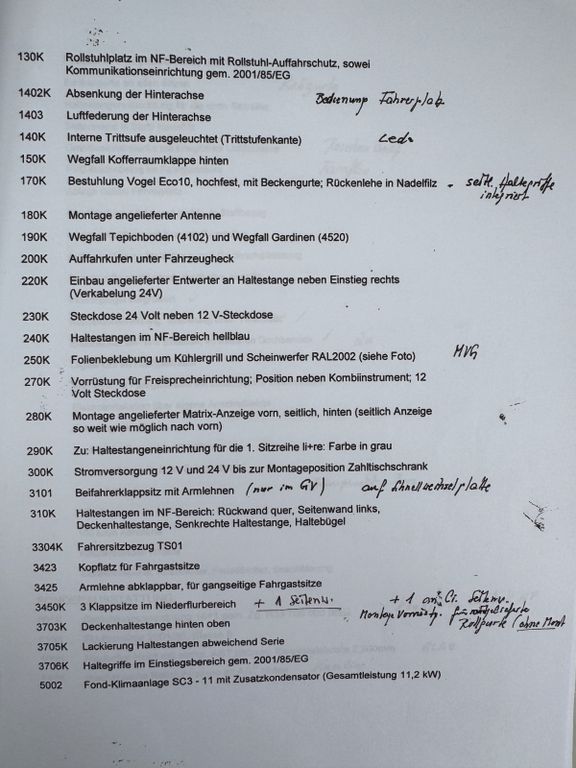 130K Rollstuhlplatz im NF-Bereich mit Rollstuhl-Auffahrschutz, sowei
Kommunikationseinrichtung gem. 2001/85/EG
1402K Absenkung der Hinterachse Bedienung Fahrerplatz
1403 Luftfederung der Hinterachse
140K Interne Trittsufe ausgeleuchtet (Trittstufenkante) Led
150K Wegfall Kofferraumklappe hinten
170K Bestuhlung Vogel Eco10, hochfest, mit Beckengurte; Rückenlehe in Nadelfilz - seitl. Haltegriffe
integriert
180K Montage angelieferter Antenne
190K Wegfall Tepichboden (4102) und Wegfall Gardinen (4520)
200K Auffahrkufen unter Fahrzeugheck
220K Einbau angelieferter Entwerter an Haltestange neben Einstieg rechts
(Verkabelung 24V)
230K Steckdose 24 Volt neben 12 V-Steckdose
240K Haltestangen im NF-Bereich hellblau
250K Folienbeklebung um Kühlergrill und Scheinwerfer RAL2002 (siehe Foto) MVG
270K Vorrüstung für Freisprecheinrichtung; Position neben Kombiinstrument; 12
Volt Steckdose
280K Montage angelieferter Matrix-Anzeige vorn, seitlich, hinten (seitlich Anzeige
so weit wie möglich nach vorn)
290K Zu: Haltestangeneinrichtung für die 1. Sitzreihe li+re: Farbe in grau
300K Stromversorgung 12 V und 24 V bis zur Montageposition Zahltischschrank
3101 Beifahrerklappsitz mit Armlehnen (nur im GV) auf Schnellwechselplatte
310K Haltestangen im NF-Bereich: Rückwand quer, Seitenwand links,
Deckenhaltestange, Senkrechte Haltestange, Haltebügel
3304K Fahrersitzbezug TS01
3423 Kopflatz für Fahrgastsitze
3425 Armlehne abklappbar, für gangseitige Fahrgastsitze
3450K 3 Klappsitze im Niederflurbereich + 1 Seitenw. + 1 an Seitenw.
3703K Deckenhaltestange hinten oben
3705K Lackierung Haltestangen abweichend Serie
3706K Haltegriffe im Einstiegsbereich gem. 2001/85/EG
5002 Fond-Klimaanlage SC3 - 11 mit Zusatzkondensator (Gesamtleistung 11,2 kW)